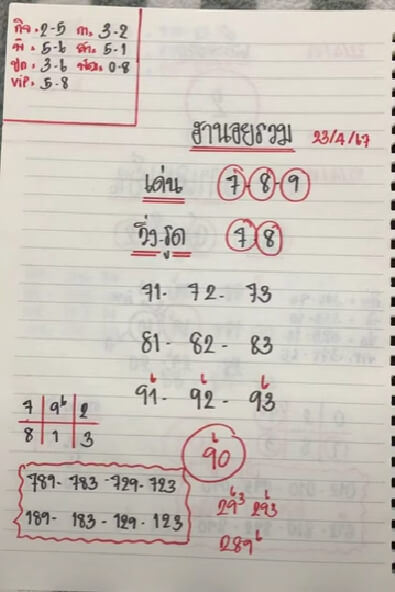 กิจ. 2-5 ก. 3-2
พิ. 5-6 สา. 5-1
ปก. 3-6 พัฒ. 0-8
VIP. 5-8
ฮานอยรวม 23/4/67
เด่น 7-8-9
วิ่ง-รูด 7 8
71- 72- 73
81- 82- 83
91- 92- 93
6 6 6
7 9 6 2
8 1 3
90
6
789- 783-729-723
189- 183-129-123
293 293
6 3 6
289 6